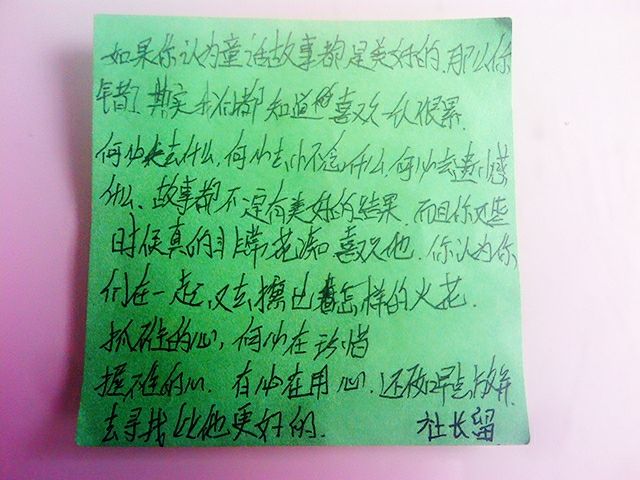 如果你认为童话故事都是美好的.那么你
错了.其实我们都知道喜欢一个人很累.
何必去什么,何必去怀念什么.何必去遗憾
什么.故事都不一定有美好的结果.而且你有些
时候真的非常 喜欢他.你认为你
们在一起又去擦出怎样的火花.
抓住的心,何必在珍惜
握不住的心.有必在用心.还不如早点放弃.
去寻找比他更好的.
社长留